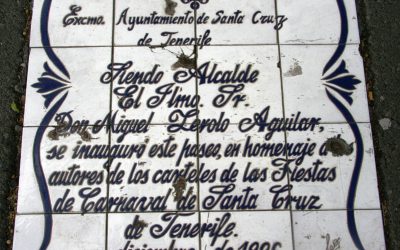 Excmo. Ayuntamiento de Santa Cruz
de Tenerife
Siendo Alcalde
El Ilmo. Sr.
Don Miguel Zerolo Aguilar,
se inauguró este paseo, en homenaje a los
autores de los carteles de las Fiestas
de Carnaval de Santa Cruz
de Tenerife.
diciembre de